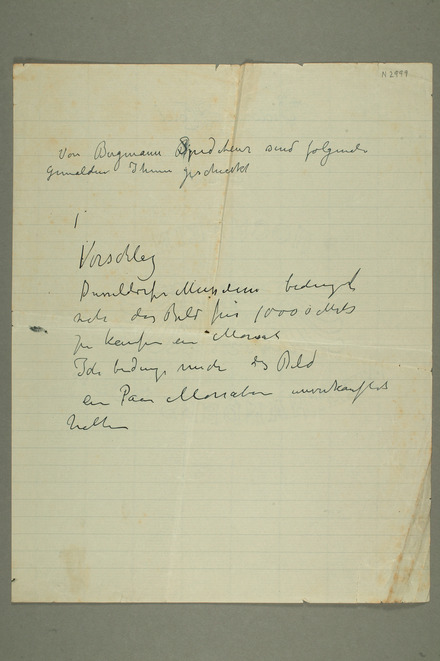 N 2999
Von Bergmann sind folgende
Gemälder Ihnen geschickt
1
Vorschlag
Dusseldorfer Museum bedingt
sich das Bild für 10000 Mk
zu kaufen ein Monat
Ich bedinge mich das Bild
ein Paar Monaten unverkauft
halten